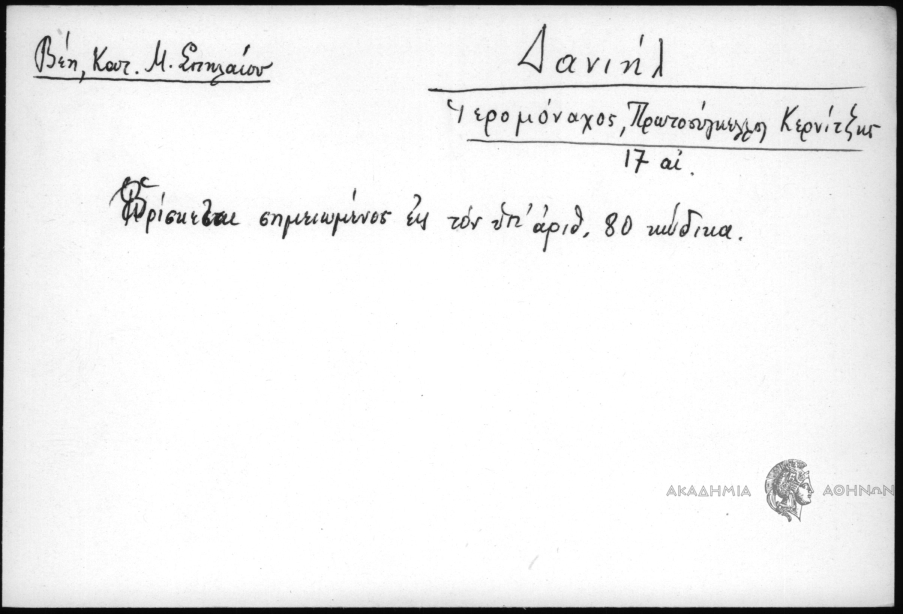 Βέη, Κατ. Μ. Σπηλαίου
Δανιήλ
Ἱερομόναχος, Πρωτοσύγκελλος Κερνίτζης
17 αἰ.
Εὑρίσκεται σημειωμένος εἰς τόν ὑπ' ἀριθ. 80 κώδικα.
ΑΚΑΔΗΜΙΑ ΑΘΗΝΩΝ